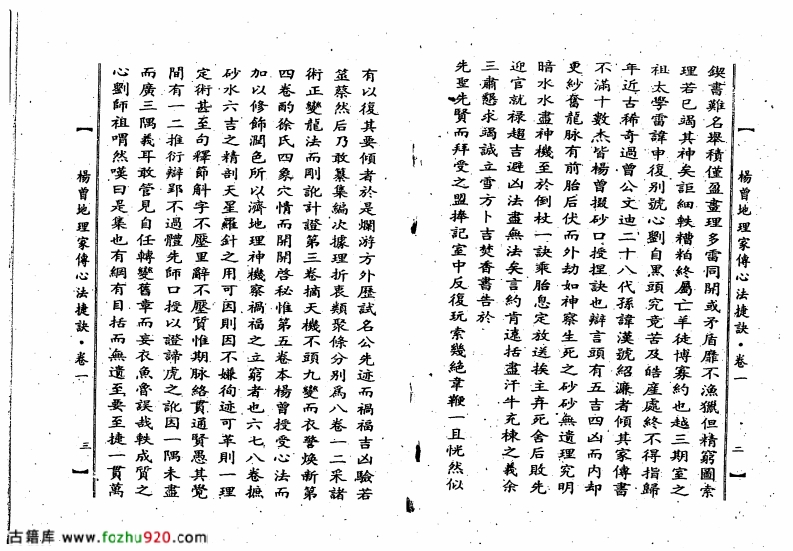 【 楊曾地理家傳心法捷訣·卷一 二 】
鍥書難名舉積僅盈畫理多雷同開或矛盾靡不漁獵但精窮圖索
理若已竭其神矣詎細帙糟粕終屬亡羊徒博寡約也越三期室之
祖太學雷諱申復別號心劉自黑頭究竟苦及皓產處終不得指歸
年近古稀奇過曾公文迪二十八代孫諱漢號紹濂者傾其家傳書
不滿十數杰皆楊曾掇砂口授捏訣也辯言頭有五吉四凶而內却
更紗奮龍脉有前胎后伏而外劫如神察生死之砂砂無遺理究明
暗水水盡神機至於倒杖一訣乘胎息定放送挨主弃死舍后敗先
迎官就禄趨吉避凶法盡無法矣言約肯遠括盡汗牛充棟之義余
三肅懇求竭誠立雪方卜吉焚香書告於
先聖先賢而拜受之盟捧記室中反復玩索幾絶韋鞭一旦恍然似
有以復其要傾者於是爛游方外歷試名公先迹而禍福吉凶驗若
筮蔡然后乃敢纂集編次據理折衷類聚條分别爲八卷一二采諸
術正變龍法而剛訛計證第三卷摘天機不頭九變而衣謷焕新第
四卷酌徐氏四象穴情而開開啓秘惟第五卷本楊曾授受心法而
加以修飾潤色所以濟地理神機察禍福之立窮者也六七八卷摭
砂水六吉之精剖天星羅針之用可因則因不嫌徇迹可革則一理
定術甚至句釋節斛字不壓里辭不壓質惟期脉絡貫通賢愚其覺
間有一二推衍辯郢不過體先師口授以證諦虎之訛因一隅未盡
而廣三隅義耳敢管見自任轉變舊章而妄衣魚魯誤哉帙成質之
心劉師祖喟然嘆曰是集也有綱有目括而無遺至要至捷一貫萬
【 楊曾地理家傳心法捷訣·卷一 三 】
古籍库 www.fozhu920.com